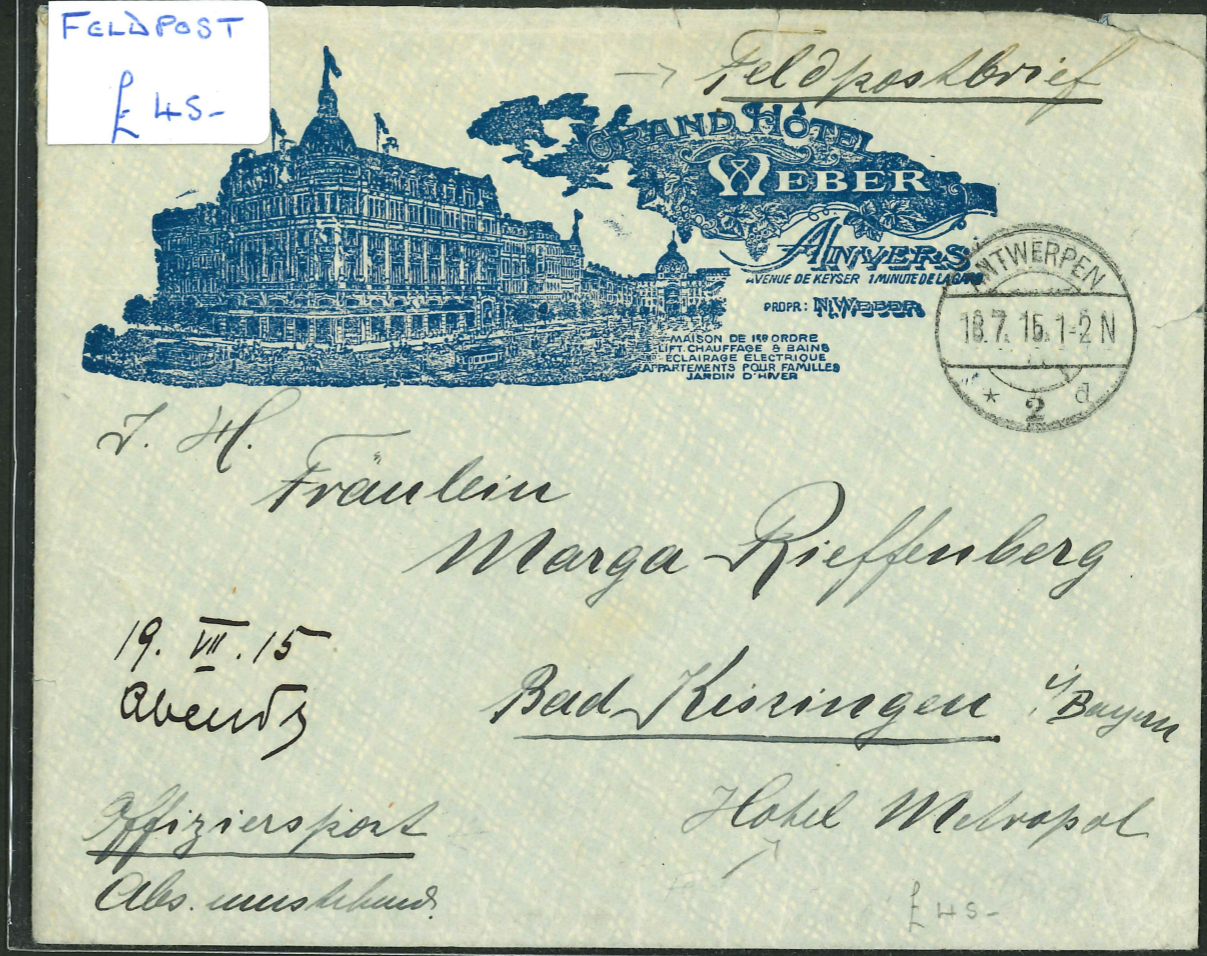 FELDPOST
£ 45-
→ Feldpostbrief
GRAND HÔTEL
WEBER
ANVERS
AVENUE DE KEYSER 1 MINUTE DE LA GARE
PROPR: N. WEBER
MAISON DE 1ER ORDRE
LIFT. CHAUFFAGE & BAINS
ECLAIRAGE ÉLECTRIQUE
APPARTEMENTS POUR FAMILLES
JARDIN D'HIVER
ANTWERPEN
18.7.15.1-2 N
* 2 d
I. H.
Fräulein
Marga Rieffenberg
19. VII. 15
abends
Bad Kissingen i/Bayern
Offizierspost
Hotel Metropol
Abs. umstehend.
£ 45-